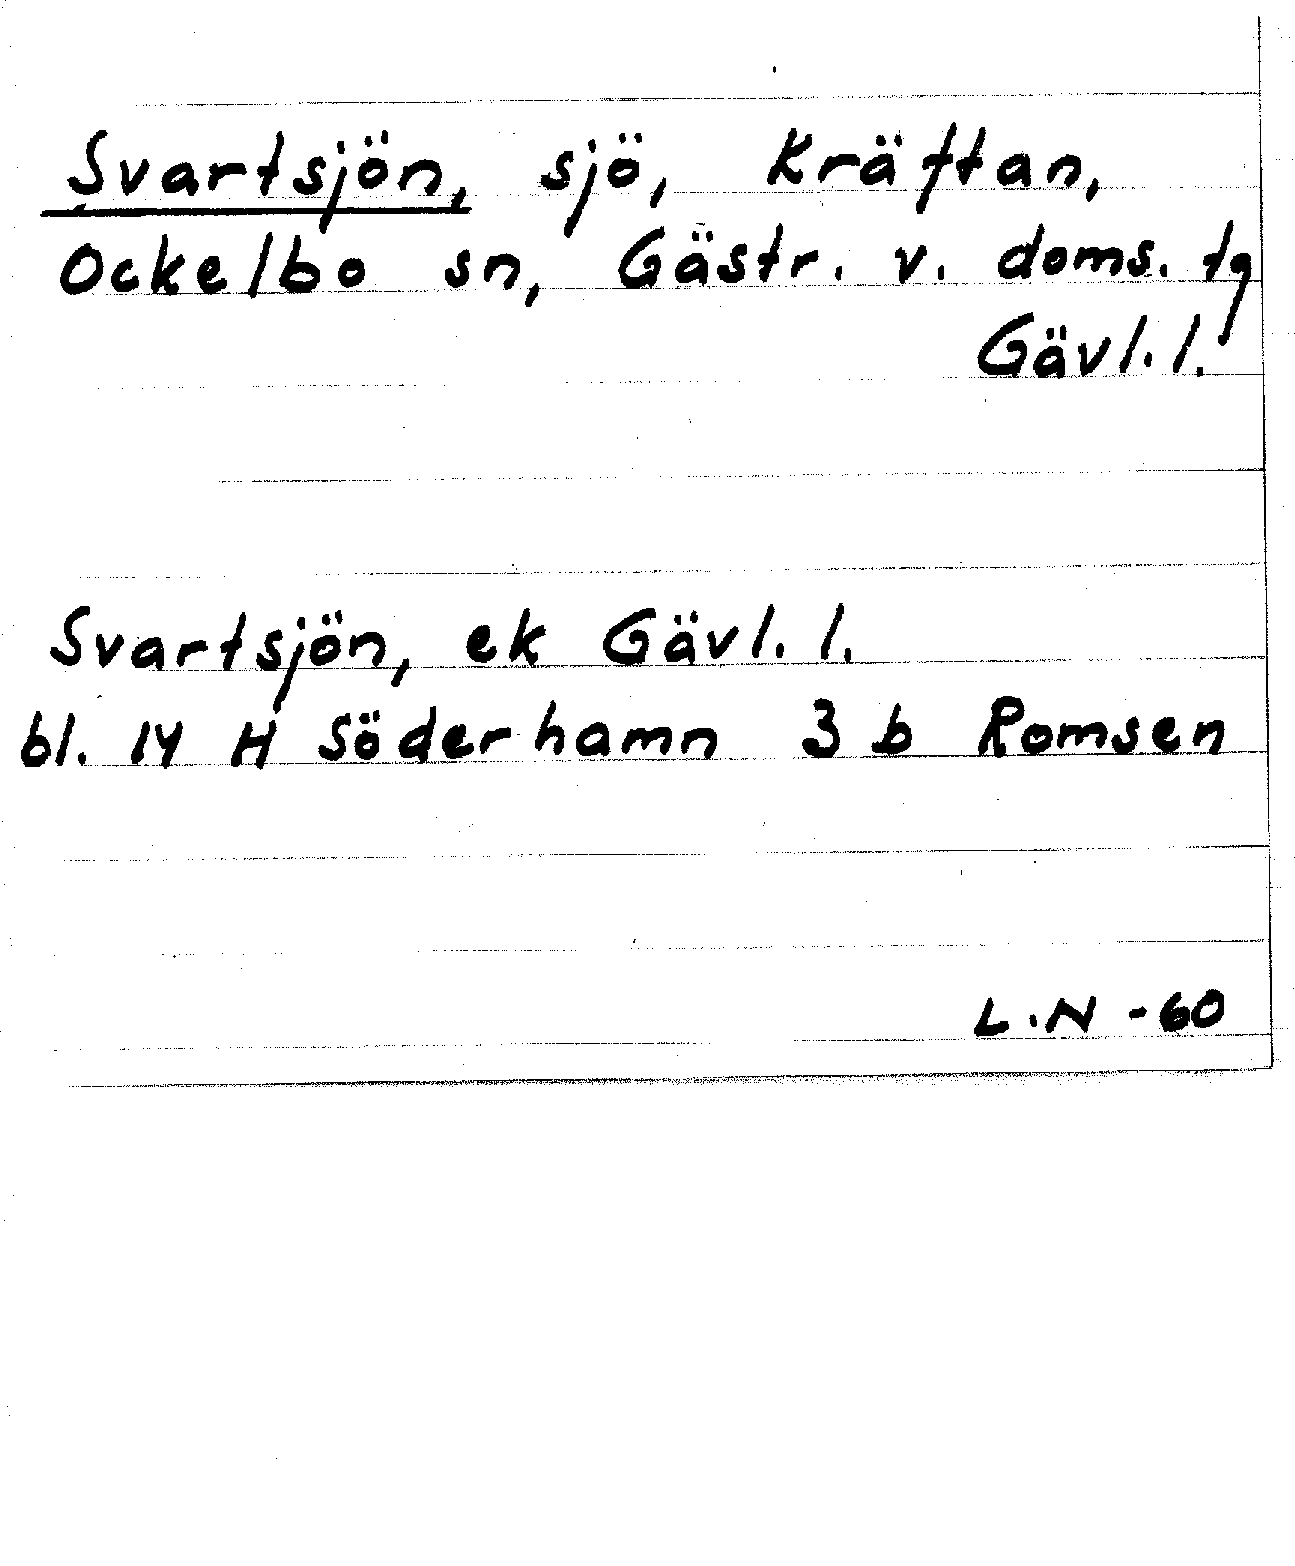 Svartsjön, sjö, Kräftan,
Ockelbo sn, Gästr. v. doms. tg
Gävl. l.
Svartsjön, ek Gävl. l.
bl. 14 H Söderhamn 3 b Romsen
L.N -60